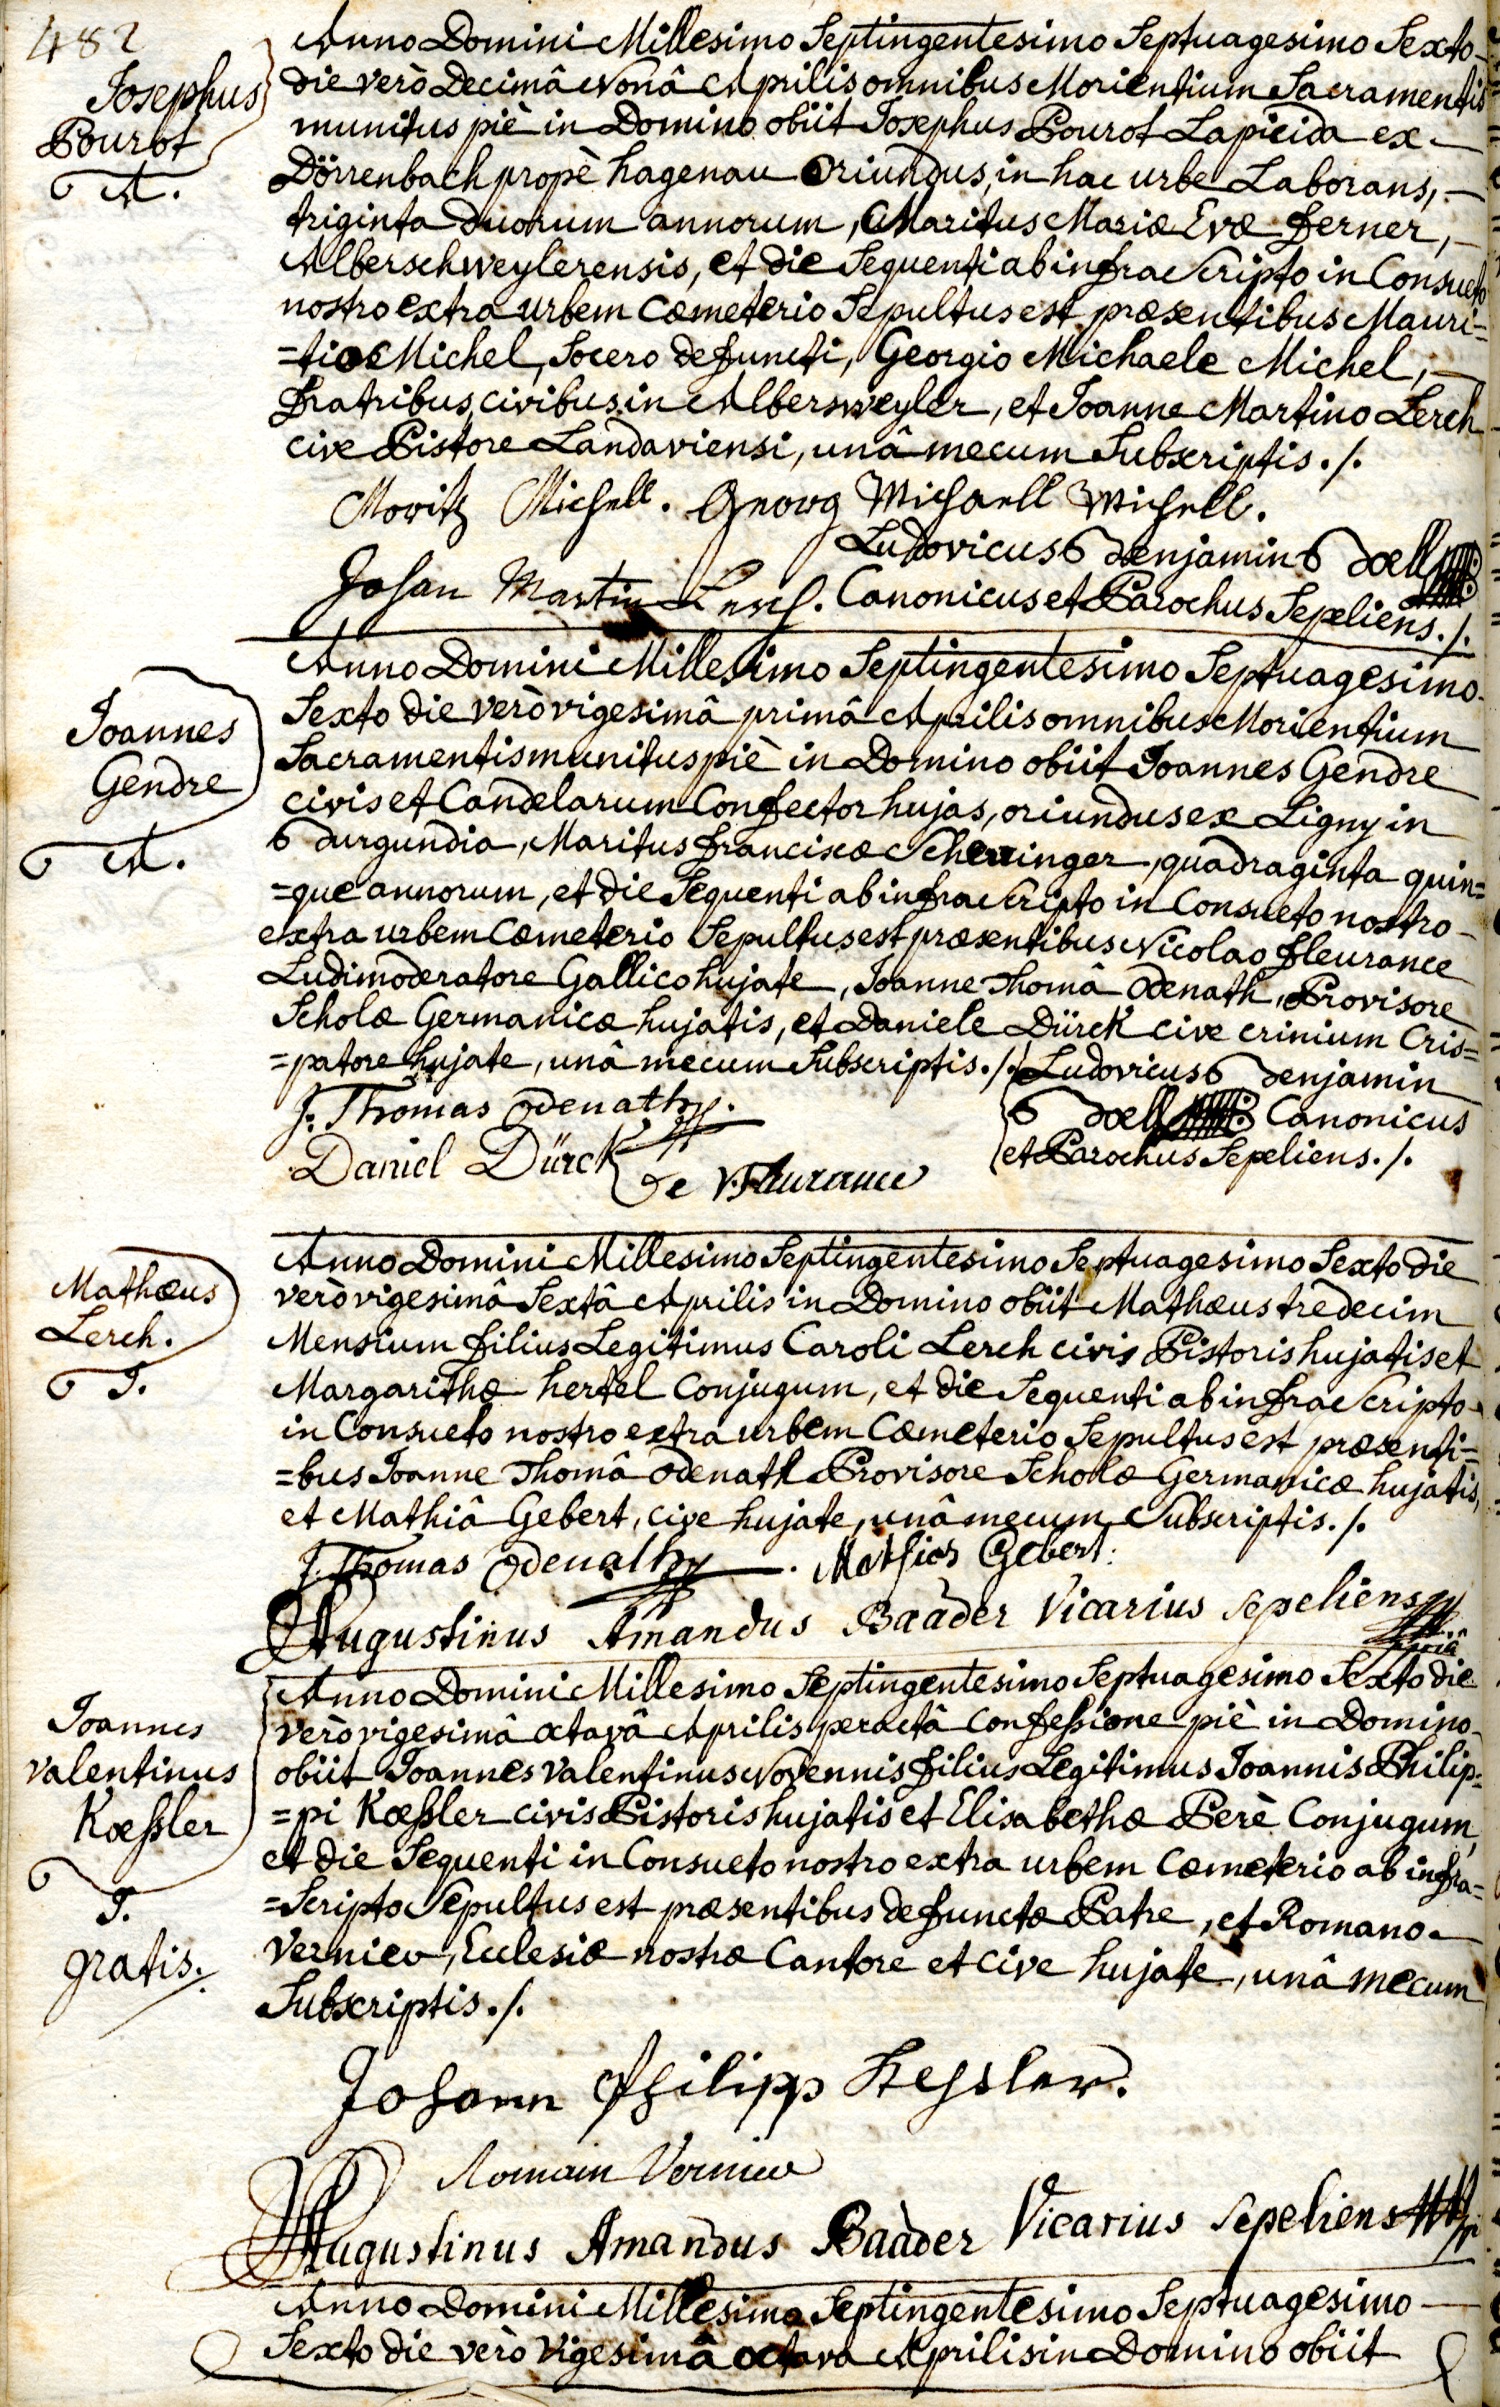 482
Josephus
Pourot
A.
Anno Domini Millesimo Septingentesimo Septuagesimo Sexto
die verò Decimâ Nonâ Aprilis omnibus Morientium Sacramentis
munitus piè in Domino obiit Josephus Pourot Lapicida ex
Dörrenbach propè hagenau Oriundus, in hac urbe Laborans,
triginta duorum annorum, Maritus Mariæ Evæ ferner,
Alberschweylerensis, et die Sequenti ab infra Scripto in Consueto
nostro extra urbem Cœmeterio Sepultus est præsentibus Mauri-
=tio Michel, Socero defuncti, Georgio Michaele Michel,
fratribus civibus in Albersweyler, et Joanne Martino Lerch
cive Pistore Landaviensi, unâ mecum Subscriptis ./.
Moritz Michell. Georg Michaell Michell.
Ludovicus Benjamin Boell
Johan Martin Lerch. Canonicus et Parochus Sepeliens ./.
Joannes
Gendre
A.
Anno Domini Millesimo Septingentesimo Septuagesimo
Sexto die verò vigesimâ primâ Aprilis omnibus Morientium
Sacramentis munitus piè in Domino obiit Joannes Gendre
civis et Candelarum Confector hujas, oriundus ex Ligny in
Burgundia, Maritus franciscæ Scherringer, quadraginta quin=
=que annorum, et die Sequenti ab infra Scripto in Consueto nostro
extra urbem Cœmeterio Sepultus est præsentibus Nicolao fleurance
Ludimoderatore Gallico hujate, Joanne Thomâ Odenath, Provisore
Scholæ Germanicæ hujatis, et Daniele Dürck cive crinium Cris=
=patore hujate, unâ mecum Subscriptis ./. Ludovicus Benjamin
J. Thomas Odenath.
Boell Canonicus
Daniel Dürck
et Parochus Sepeliens ./.
De N. Fleurance
Mathæus
Lerch.
J.
Anno Domini Millesimo Septingentesimo Septuagesimo Sexto die
verò vigesimâ Sextâ Aprilis in Domino obiit Mathæus tredecim
Mensium filius Legitimus Caroli Lerch civis Pistoris hujatis et
Margarithæ hertel Conjugum, et die Sequenti ab infra Scripto
in Consueto nostro extra urbem Cœmeterio Sepultus est præsenti=
=bus Joanne Thomâ Odenath Provisore Scholæ Germanicæ hujatis,
et Mathiâ Gebert, cive hujate, unâ mecum Subscriptis ./.
J. Thomas Odenath. Mathias Gebert.
Augustinus Amandus Baader Vicarius sepeliens
Joannes
Valentinus
Kœssler
J.
gratis.
Anno Domini Millesimo Septingentesimo Septuagesimo Sexto die
verò vigesimâ octavâ Aprilis peractâ Confessione piè in Domino
obiit Joannes Valentinus Novennis filius Legitimus Joannis Philip=
=pi Kœssler civis Pistoris hujatis et Elisabethæ Perè Conjugum,
et die Sequenti in Consueto nostro extra urbem Cœmeterio ab infra=
=Scripto Sepultus est præsentibus defunctæ Patre, et Romano
Verniev, Ecclesiæ nostræ Cantore et cive hujate, unâ mecum
Subscriptis ./.
Johann Philipp Kessler.
Romain Verniev
Augustinus Amandus Baader Vicarius sepeliens
Anno Domini Millesimo Septingentesimo Septuagesimo
Sexto die verò vigesimâ octava Aprilis in Domino obiit